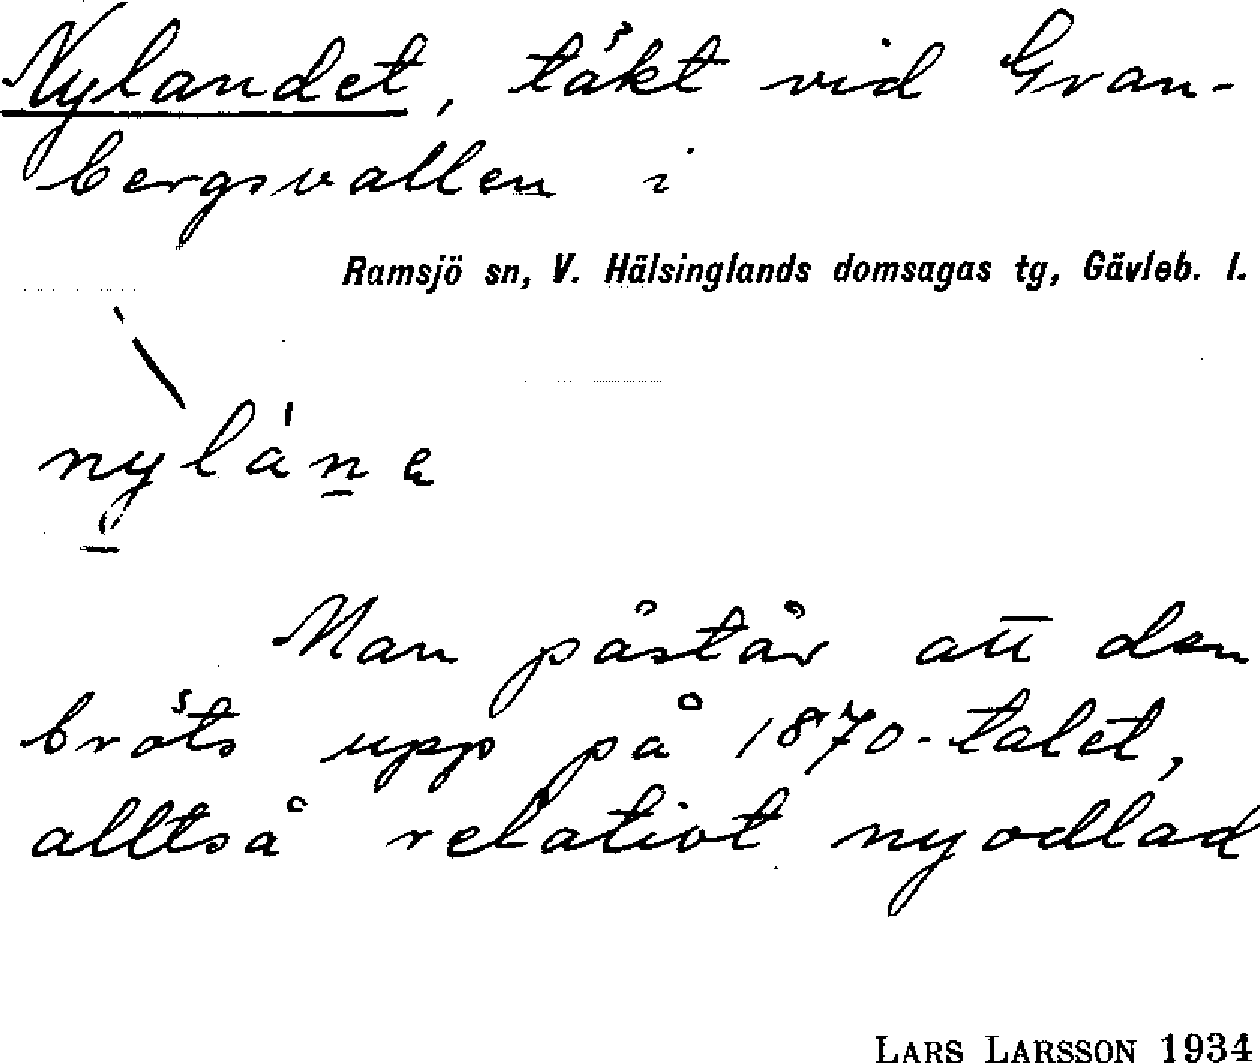 Nylandet, täkt vid Gran-
bergsvallen i
Ramsjö sn, V. Hälsinglands domsagas tg, Gävleb. l.
Man påstår att den
bröts upp på 1870-talet,
alltså relativt nyodlad
LARS LARSSON 1934